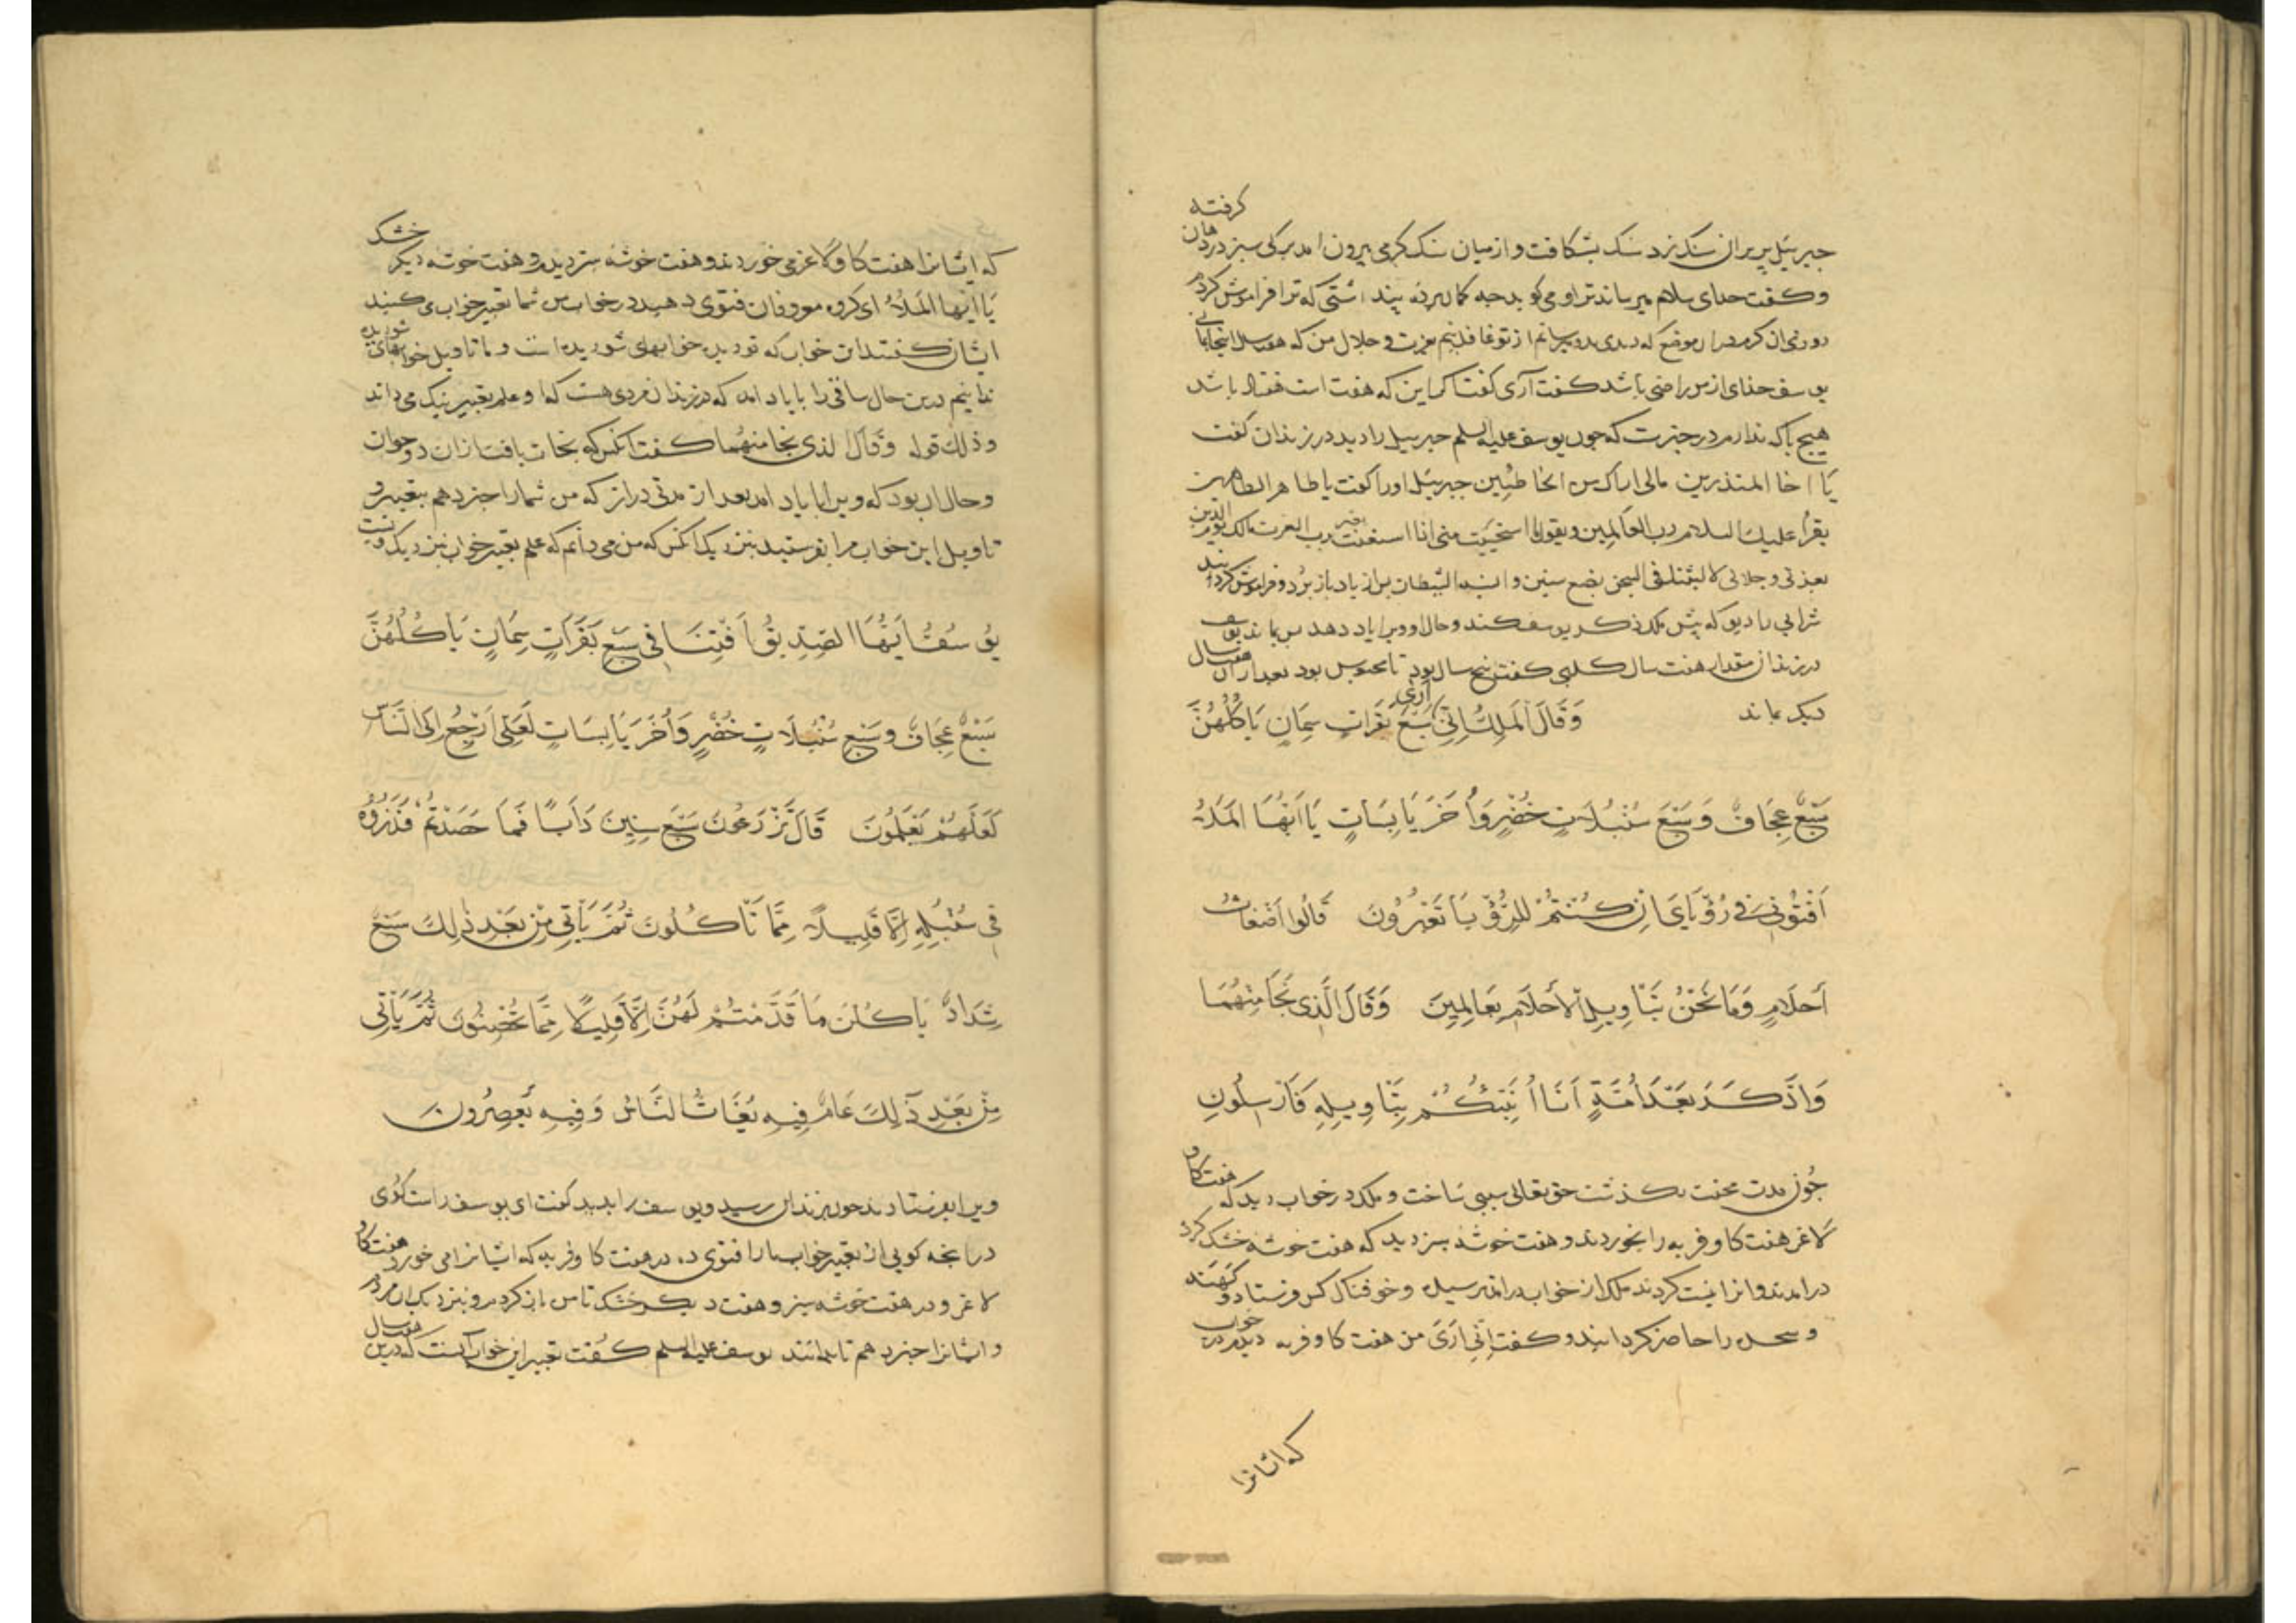 جبرئیل پر بران سنک زد سنک بشکافت و از میان سنک کرمی بیرون امد برکی سبز در دهان کرفته
و کفت خدای سلام میرساند ترا و می کوید جه کمان برده پنداشتی که ترا فراموش کردم
روزی ان کرم در ان موضع که دیدی بدو میرسانم از تو غافل نیم بعزت و جلال من که هفت سال اینجا بمانی
یوسف خدای از من راضی باشد کفت آری کفتا کر این که هفت است هفتاد باشد
هیج باکه ندارم در خبرست که جون یوسف علیه السلم جبرییل را دید در زندان کفت
یا اخا المنذرین مالی اراک بین الخاطئین جبرئیل اورا کفت یا طاهر الطاهرین
یقرأ علیک السلام رب العالمین ویقول اما استحییت منی اذا استغثت بغیر رب العزت مالک یوم الدین
بعزتی و جلالی لالبثنک فی السجن بضع سنین و انسه الشیطان بران یاد باز برد و فراموش کردانید
شرابی را دیو که پیش ملک ذکر یوسف کند و حال او ویرا یاد دهد پس بماند یوسف
در زندان مقدار هفت سال کلبی کفت پنج سال بود تا محبوس بود بعد از ان هفت سال
دیکر بماند وَقَالَ الْمَلِكُ اِنِّی اَرٰی سَبْعَ بَقَرَاتٍ سِمَانٍ یَاکُلُهُنَّ
سَبْعٌ عِجَافٌ وَسَبْعَ سُنْبُلَاتٍ خُضْرٍ وَاُخَرَ یَابِسَاتٍ یَا اَیُّهَا الْمَلَاُ
اَفْتُوْنِی فِی رُؤْیَایَ اِنْ کُنْتُمْ لِلرُّؤْیَا تَعْبُرُونَ قَالُوا اَضْغَاثُ
اَحْلَامٍ وَمَا نَحْنُ بِتَاْوِیلِ الْاَحْلَامِ بِعَالِمِینَ وَقَالَ الَّذِی نَجَا مِنْهُمَا
وَادَّکَرَ بَعْدَ اُمَّةٍ اَنَا اُنَبِّئُکُمْ بِتَاْوِیلِهِ فَاَرْسِلُونِ
جون مدت محنت بکذشت حق تعالی سببی ساخت و ملک در خواب دید که هفت کاو
لاغر هفت کاو فربه را بخوردند و هفت خوشه سبز دید که هفت خوشه خشک کرد
در امدند و انرا نیست کردند ملک از خواب درامد ترسیده و خوفناک کس فرستاد و کهنه
و سحره را حاضر کردانید و کفت اِنِّی اَرَیٰ من هفت کاو فربه دیدم در خواب
که ایشانرا
که ایشانرا هفت کاو لاغر می خوردند و هفت خوشه سبز دیدم و هفت خوشه دیکر خشک
یَا اَیُّهَا الْمَلَاُ ای کروه معروفان فتوی دهید در خواب من شما تعبیر خواب می کنید
ایشان کفتند ان خواب که تو دیدی خوابهای شوریده است و ما تاویل خوابهای شوریده
ندانیم درین حال ساقی را با یاد امد که در زندان مردی هست که او علم تعبیر نیک می داند
و ذلک قوله وَقَالَ الذی نجا منهما کفت انکس که نجات یافت ازان دو جوان
و حال ان بود که ویرا با یاد امد بعد از مدتی دراز که من شمارا خبر دهم بتعبیر و
تاویل این خواب مرا بفرستید بنزدیک انکس که من می دانم که علم تعبیر خواب بنزدیک ویست
یُوسُفُ اَیُّهَا الصِّدِّیقُ اَفْتِنَا فِی سَبْعِ بَقَرَاتٍ سِمَانٍ یَاکُلُهُنَّ
سَبْعٌ عِجَافٌ وسَبْعِ سُنْبُلَاتٍ خُضْرٍ وَاُخَرَ یَابِسَاتٍ لَعَلِّی اَرْجِعُ اِلَی النَّاسِ
لَعَلَّهُمْ یَعْلَمُونَ قَالَ تَزْرَعُونَ سَبْعَ سِنِینَ دَاَبًا فَمَا حَصَدْتُمْ فَذَرُوهُ
فِی سُنْبُلِهِ اِلَّا قَلِیلًا مِمَّا تَاْکُلُونَ ثُمَّ یَاْتِی مِنْ بَعْدِ ذٰلِكَ سَبْعٌ
شِدَادٌ یَاکُلْنَ مَا قَدَّمْتُمْ لَهُنَّ اِلَّا قَلِیلًا مِمَّا تُحْصِنُونَ ثُمَّ یَاْتِی
مِنْ بَعْدِ ذٰلِكَ عَامٌ فِیهِ یُغَاثُ النَّاسُ وَفِیهِ یَعْصِرُونَ
ویرا بفرستادند جون بزندان رسید و یوسف را بدید کفت ای یوسف راست کوی
در انجه کویی از تعبیر خواب ما را فتوی ده در هفت کاو فربه که ایشانرا می خورد هفت کاو
لاغر و در هفت خوشه سبز و هفت دیکر خشک تا من باز کردم و بنزدیک ان مردم
و ایشانرا خبر دهم تا بدانند یوسف علیه السلم کفت تعبیر این خواب آنست که درین هفت سال